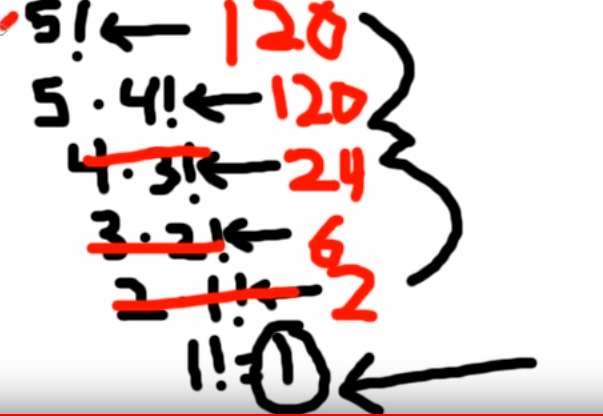 5! ← 120
5 · 4! ← 120
4 · 3! ← 24
3 · 2! ← 6
2 · 1! ← 2
1! = 1 ←